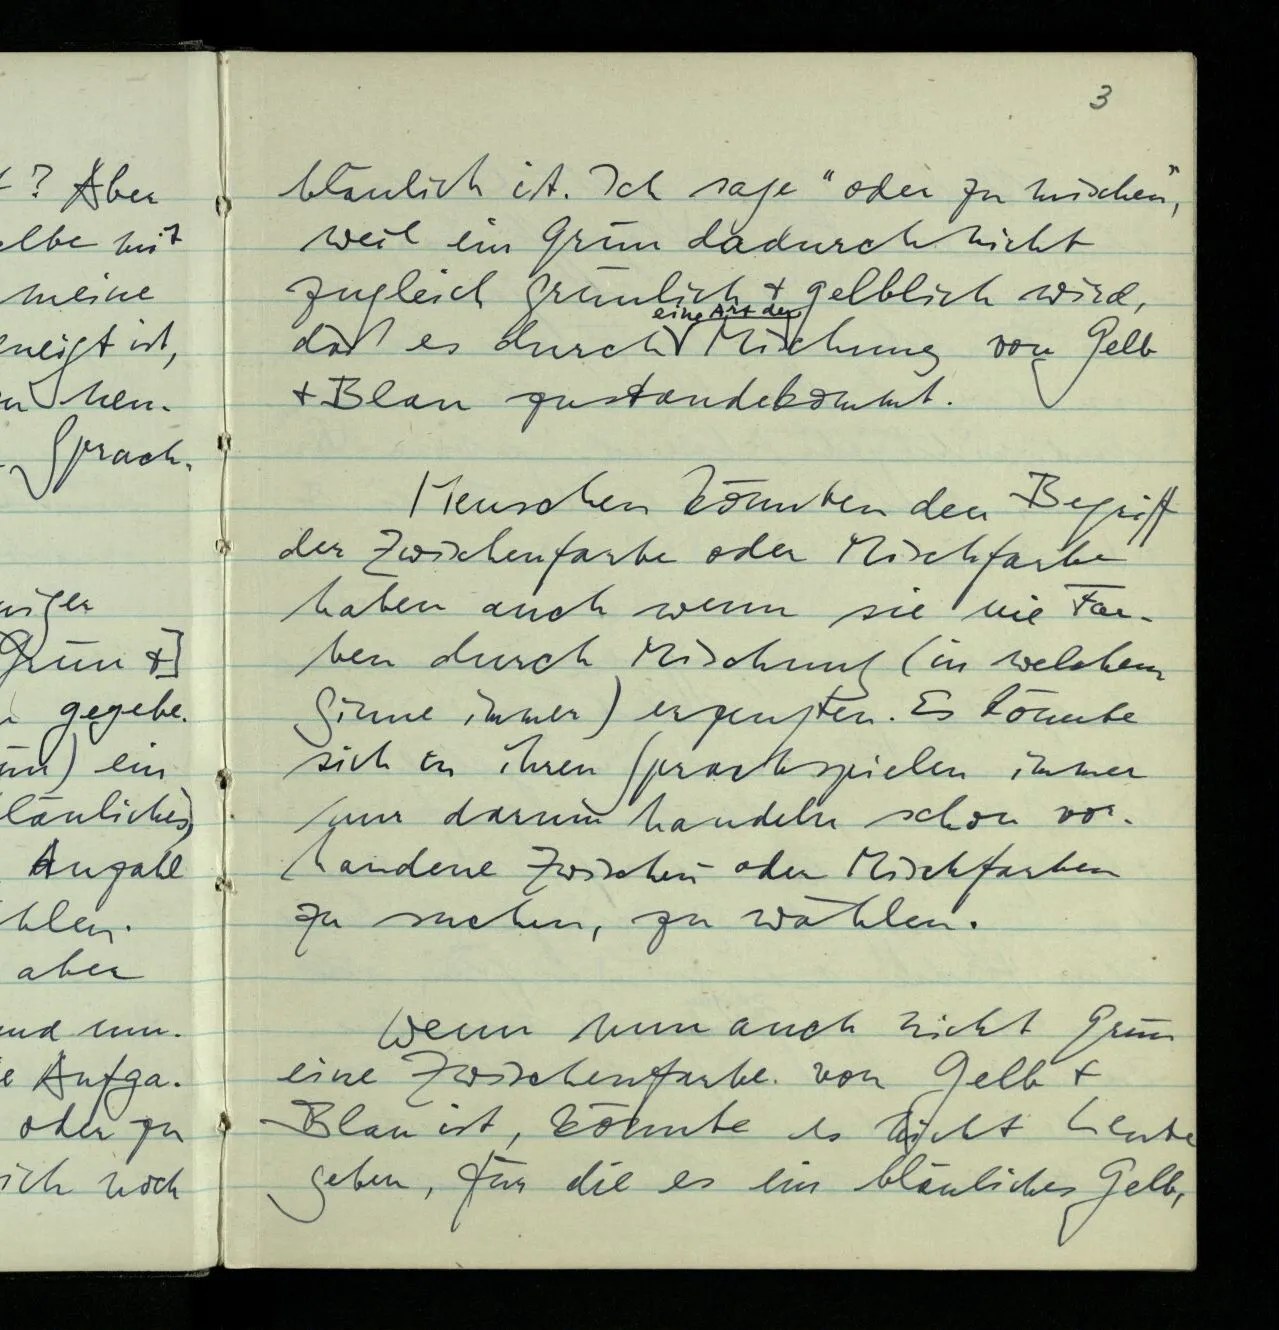 3
t? Aber
elbe mit
meine
eneigt ist,
en nen-
Sprach-
niger
Grün &]
gegebe-
ün) ein
läuliches)
Anzahl
hlen.
aber
und nun-
e Aufga-
oder zu
ich noch
bläulich ist. Ich sage "oder zu mischen",
weil ein Grün dadurch nicht
zugleich grünlich + gelblich wird,
eine Art der
daß es durch Mischung von Gelb
+ Blau zustandekommt.
Menschen könnten den Begriff
der Zwischenfarbe oder Mischfarbe
haben auch wenn sie nie Far-
ben durch Mischung (in welchem
Sinne immer) erzeugten. Es könnte
sich in ihren Sprachspielen immer
nur darum handeln schon vor-
handene Zwischen- oder Mischfarben
zu suchen, zu wählen.
Wenn nun auch nicht Grün
eine Zwischenfarbe von Gelb +
Blau ist, könnte es nicht Leute
geben, für die es ein bläuliches Gelb,